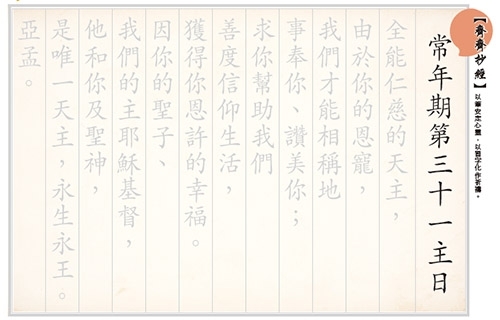 【齊齊抄經】以筆安定心靈,以習字化作祈禱。
常年期第三十一主日
全能仁慈的天主,
由於你的恩寵,
我們才能相稱地
事奉你、讚美你;
求你幫助我們
善度信仰生活,
獲得你恩許的幸福。
因你的聖子、
我們的主耶穌基督,
他和你及聖神,
是唯一天主,永生永王。
亞孟。